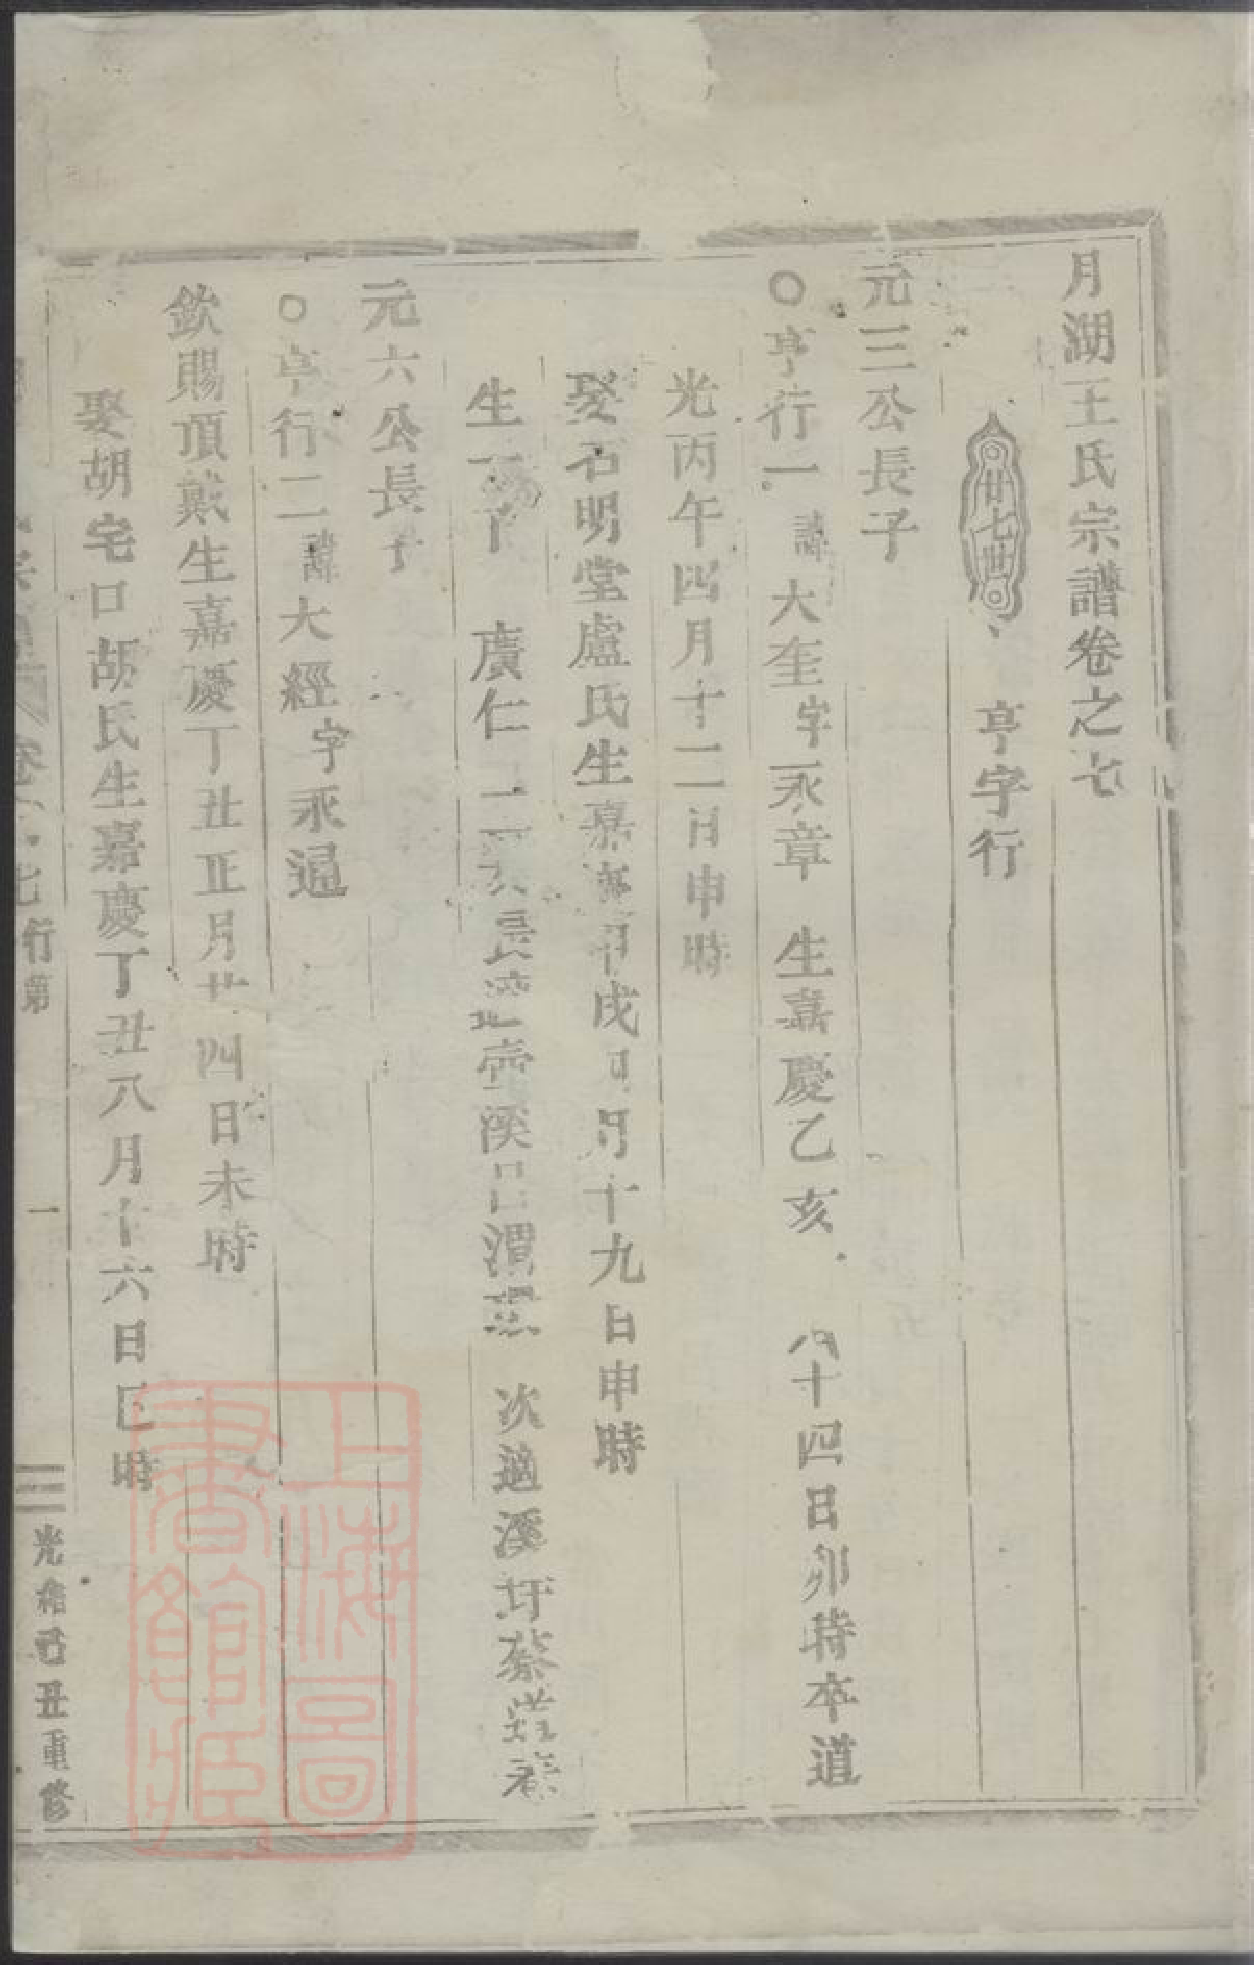 月湖王氏宗譜卷之七
廿七世 亨字行
元三公長子
○亨行一諱大奎字永章 生嘉慶乙亥 八十四日卯時卒道
光丙午四月十二日申時
娶石明堂盧氏生嘉慶 戌 月十九日申時
生一子 廣仁 二女長適壺溪 次適溪圩蔡
元六公長子
○亨行二諱大經字永通
欽賜頂戴生嘉慶丁丑正月廿四日未時
娶胡宅口胡氏生嘉慶丁丑八月十六日巳時
卷之七 行第 一 光緒己丑重修
上海圖書館藏